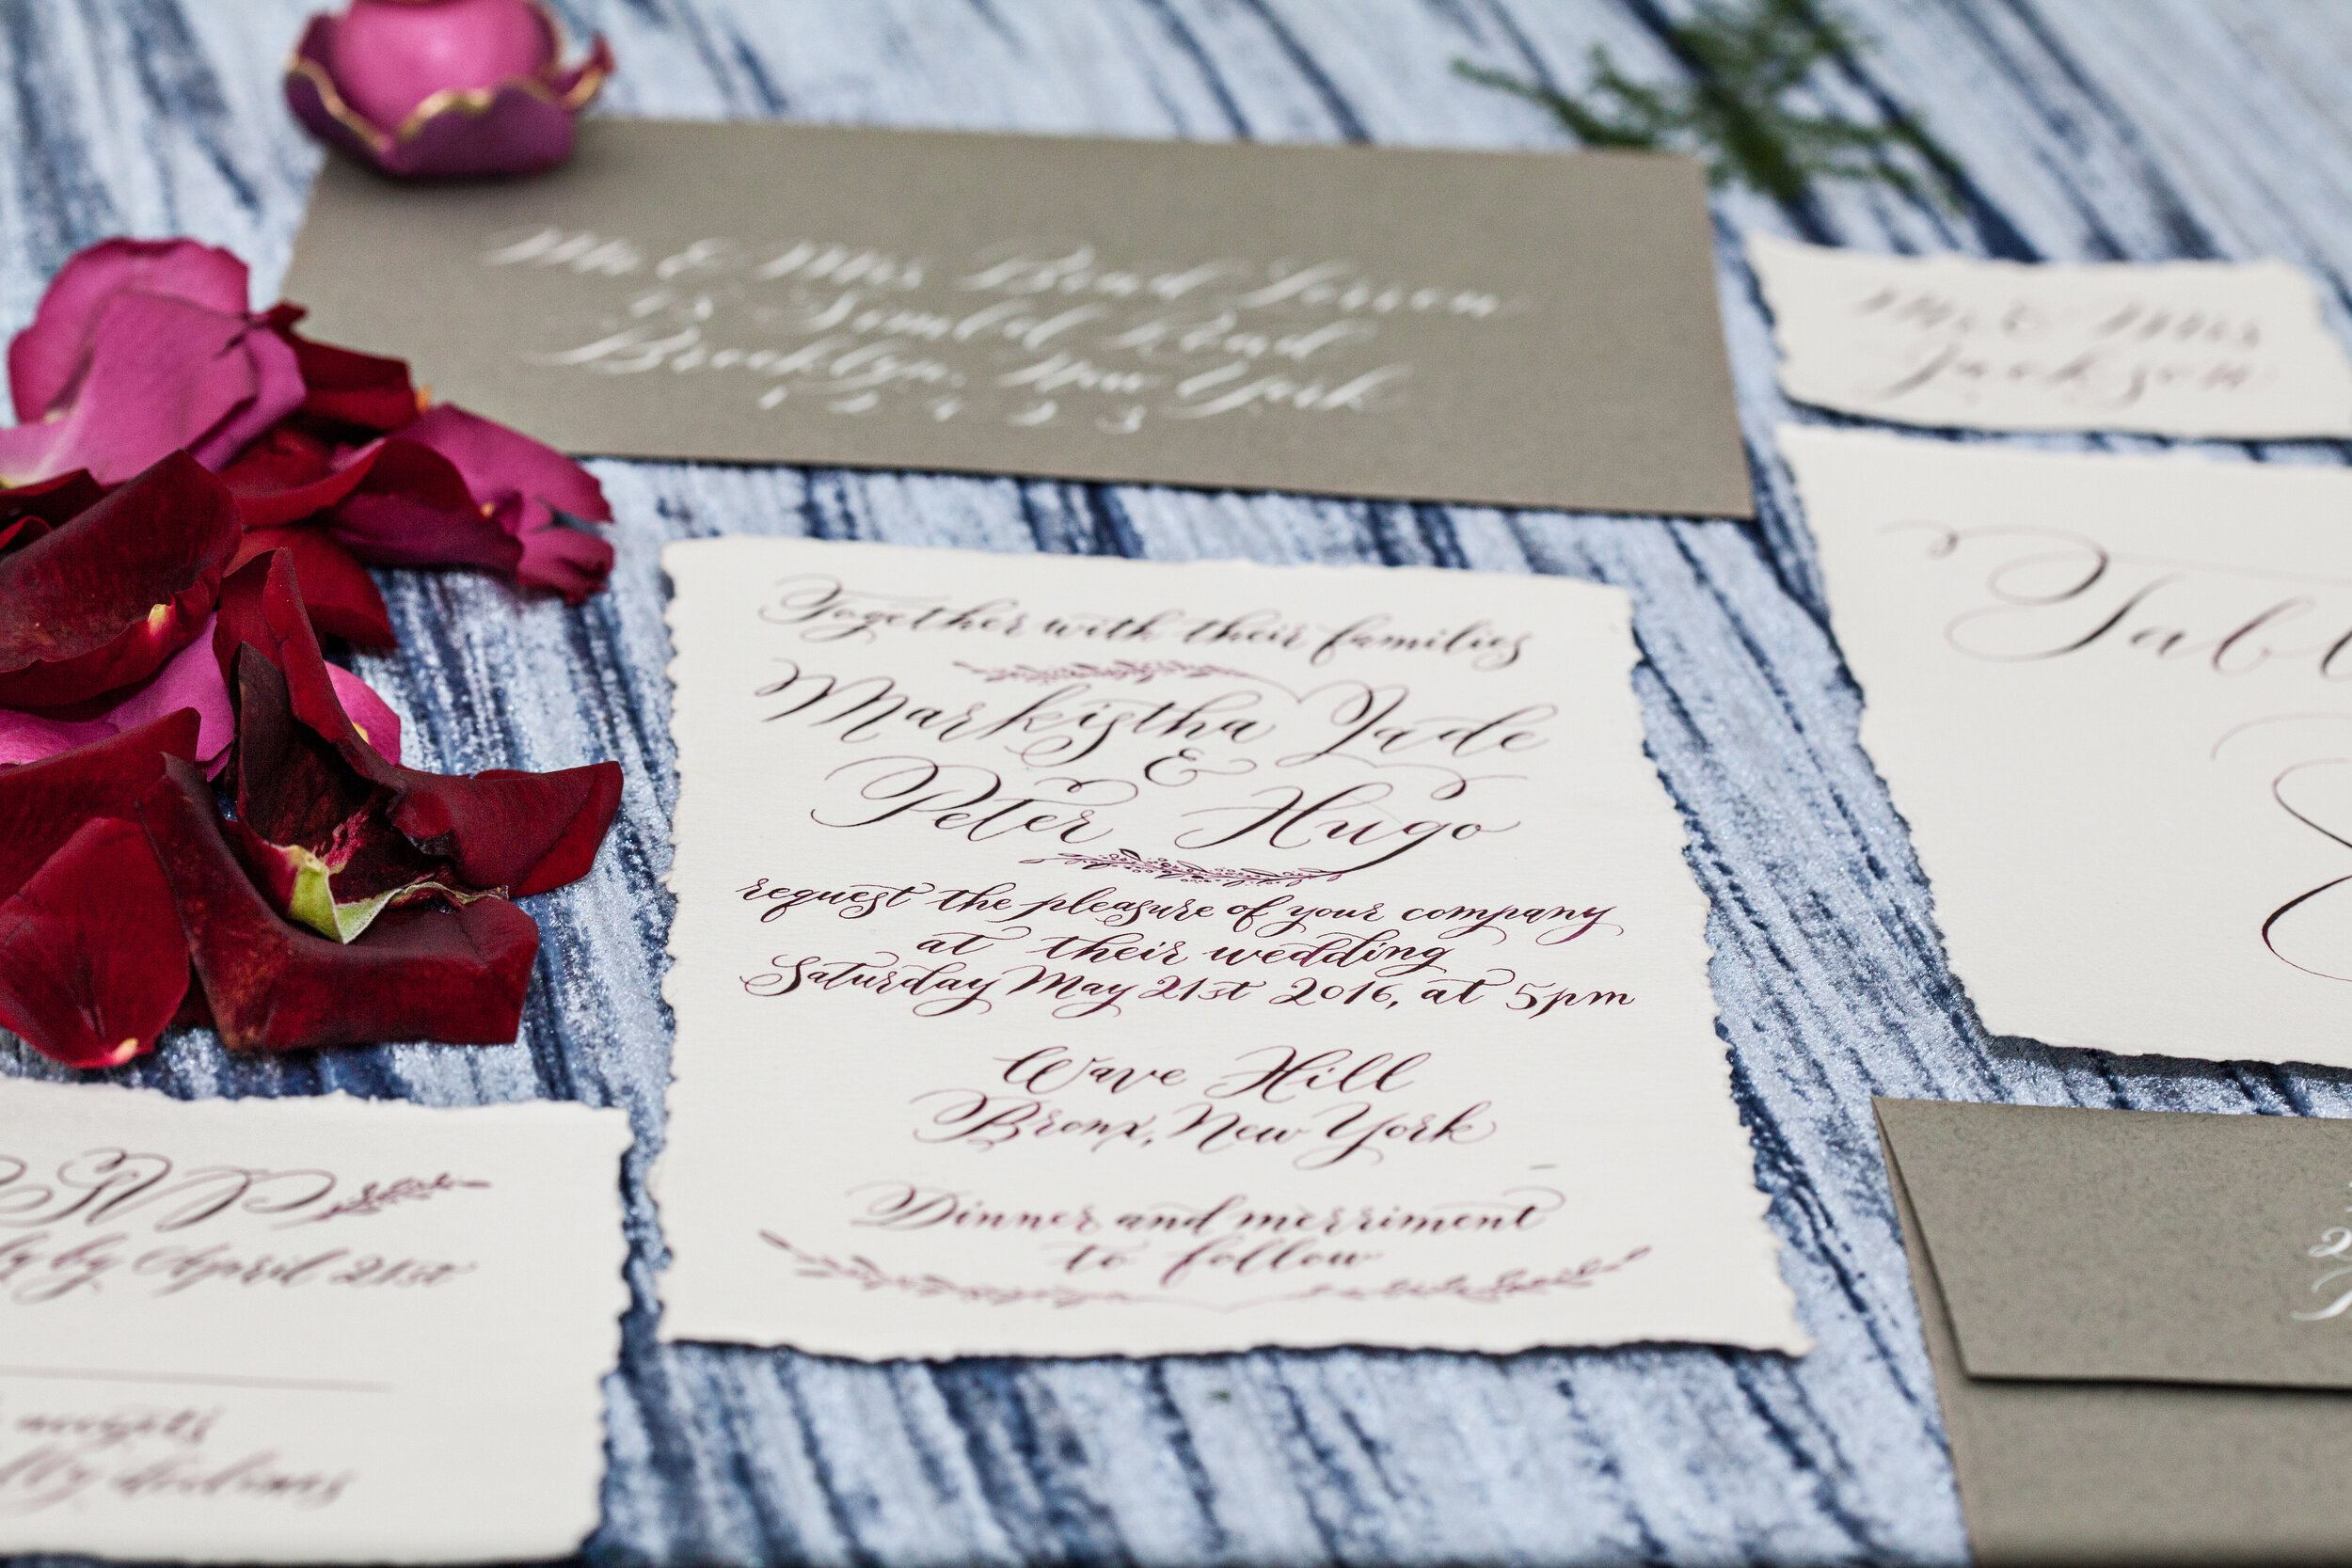 Mr & Mrs Brad
Road
Brooklyn, New York
Mr & Mrs
Jackson
Together with their families
Markistha Jade
&
Peter Hugo
request the pleasure of your company
at their wedding
Saturday May 21st 2016, at 5pm
Wave Hill
Bronx, New York
Dinner and merriment
to follow
Tabl
SVP
ly by April 21st
accepts
lly declines